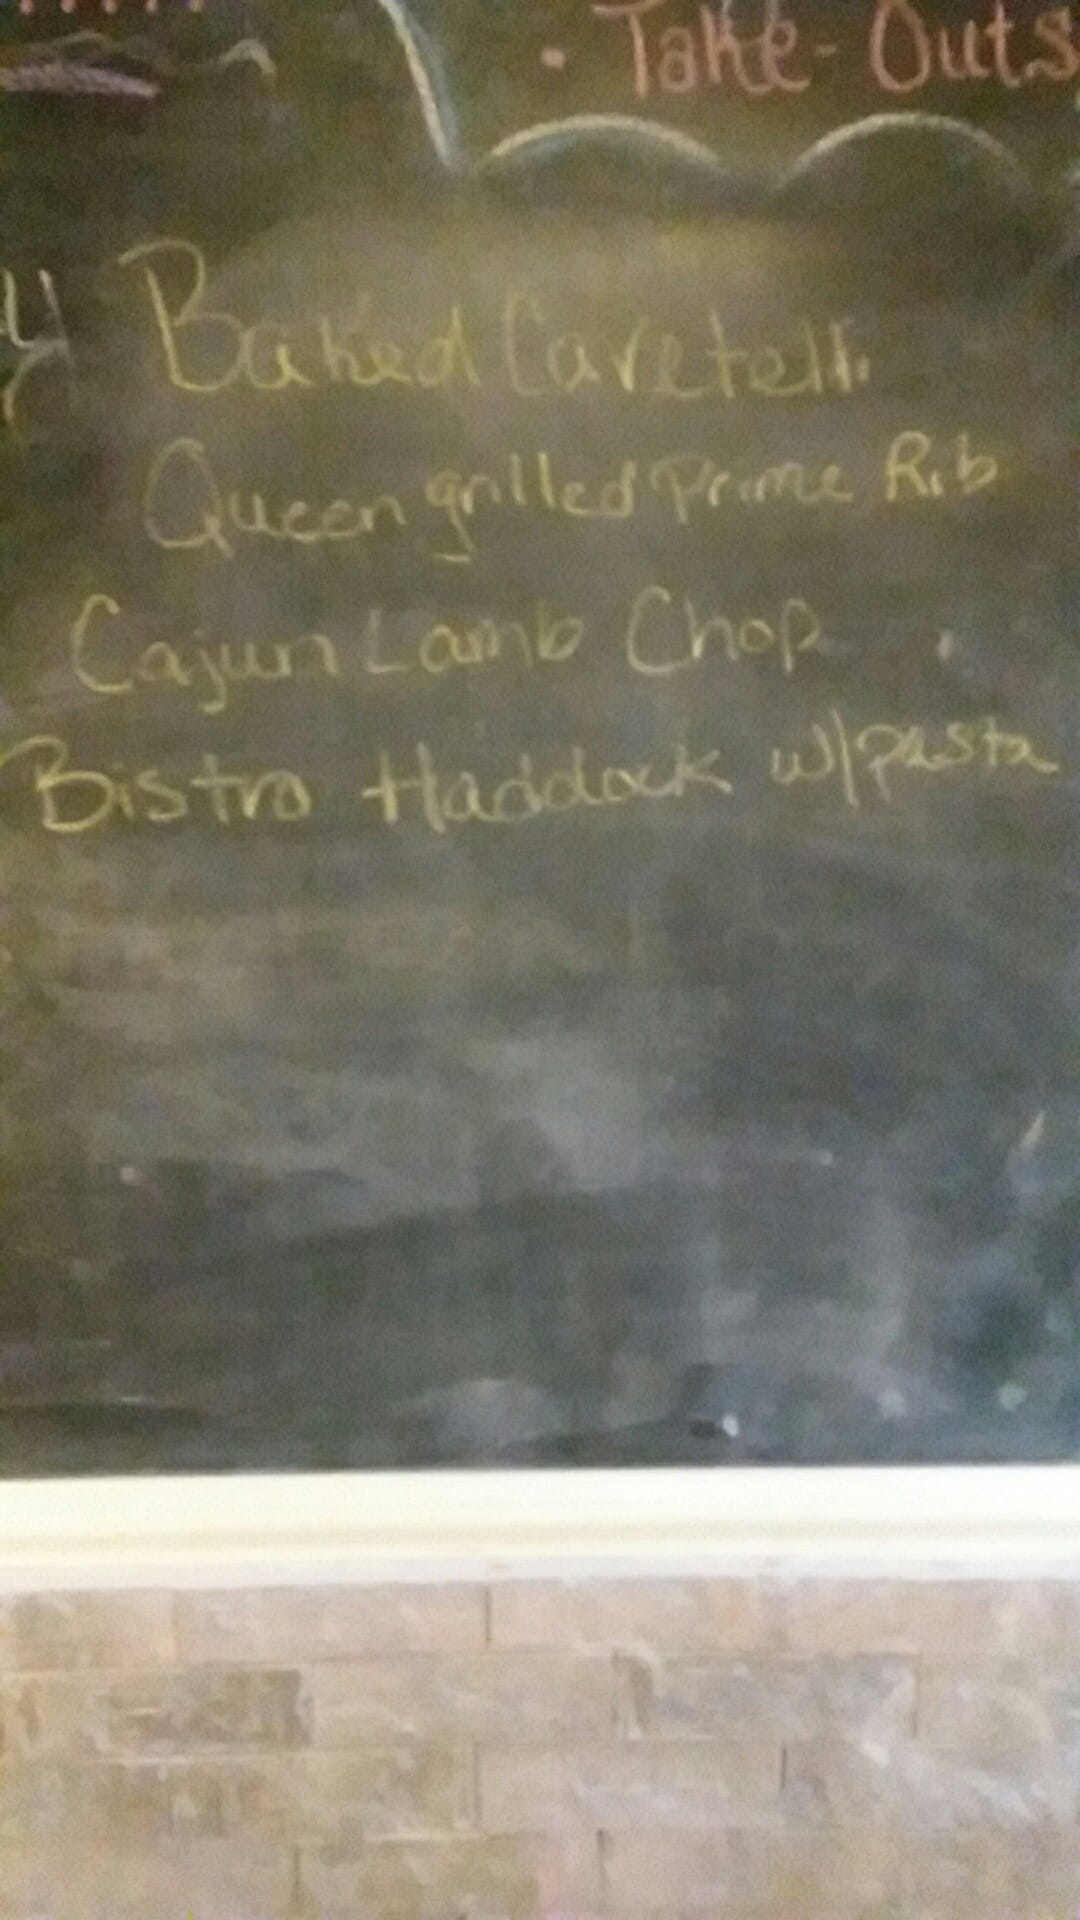 • Take-Outs
Baked Cavetelli
Queen grilled Prime Rib
Cajun Lamb Chop
Bistro Haddock w/pasta